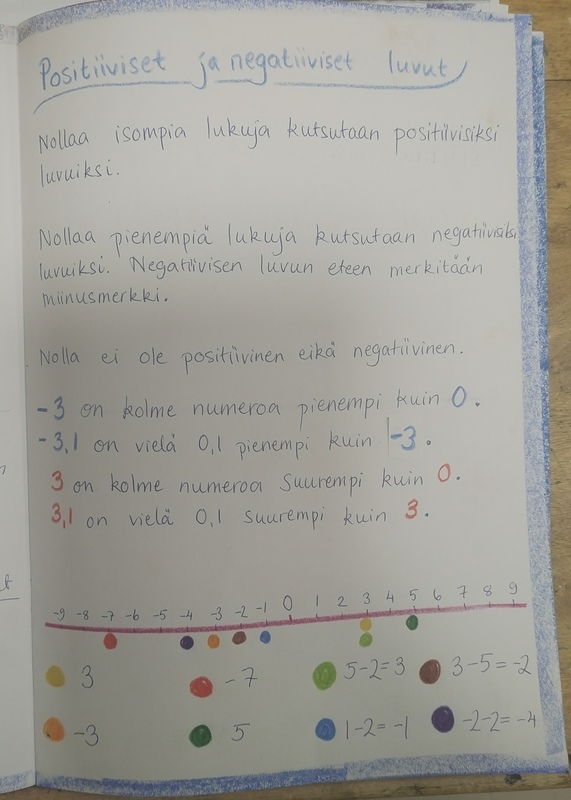 Positiiviset ja negatiiviset luvut
Nollaa isompia lukuja kutsutaan positiivisiksi
luvuiksi.
Nollaa pienempiä lukuja kutsutaan negatiivisiksi
luvuiksi. Negatiivisen luvun eteen merkitään
miinusmerkki.
Nolla ei ole positiivinen eikä negatiivinen.
-3 on kolme numeroa pienempi kuin 0.
-3,1 on vielä 0,1 pienempi kuin -3.
3 on kolme numeroa suurempi kuin 0.
3,1 on vielä 0,1 suurempi kuin 3.
-9 -8 -7 -6 -5 -4 -3 -2 -1 0 1 2 3 4 5 6 7 8 9
3 -7 5-2=3 3-5=-2
-3 5 1-2=-1 -2-2=-4